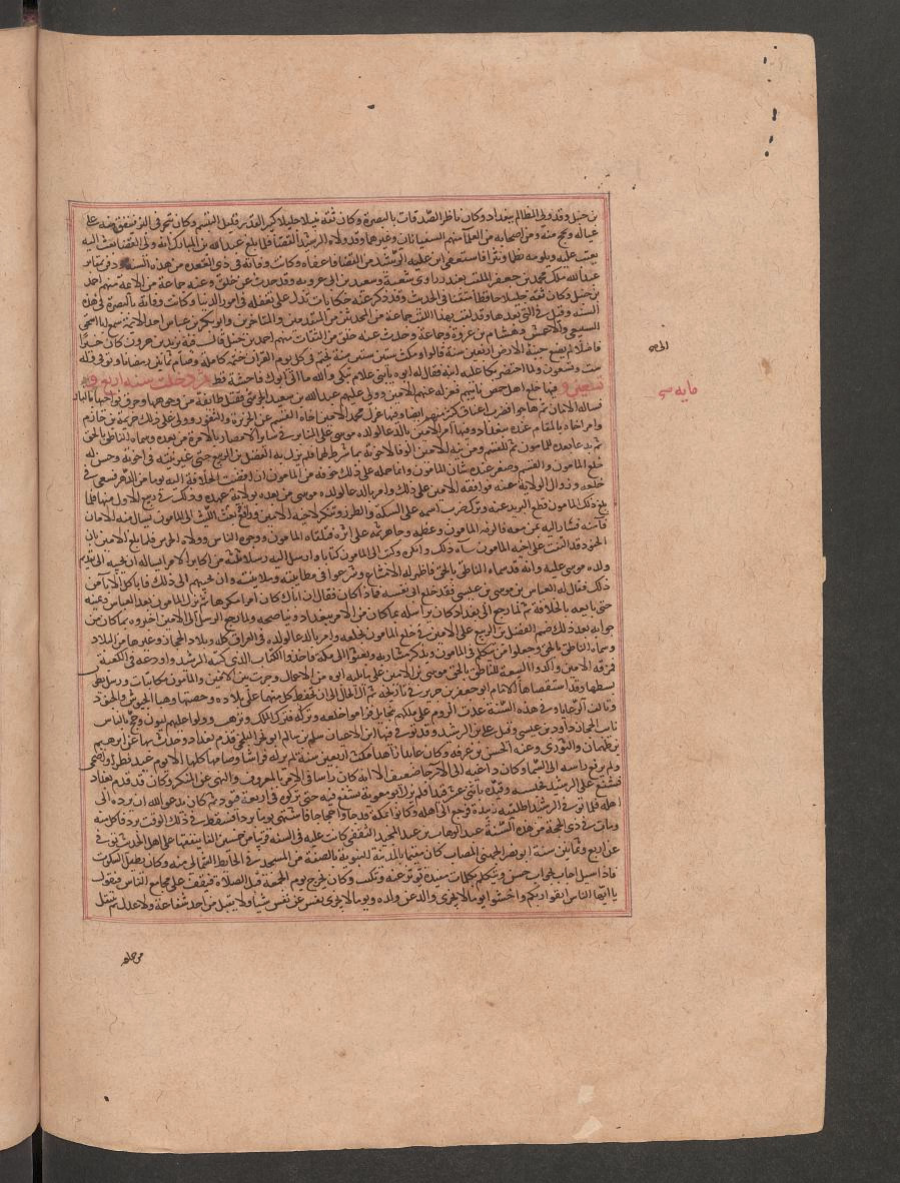 بن حنبل وقد ولى المظالم ببغداد وكان ناظر الصدقات بالبصرة وكان ثقة نبيلا جليلا كبير القدر قليل التبسم وكان يتجر في البز ينفق منه على
عياله ويحج منه ومن اصحابه من العلماء منهم السفيانان وغيرهما وقد ولاه الرشيد القضا فلما بلغ عبد الله بن المبارك انه ولى القضا بعث اليه
يعتب عليه ويلومه نظما ونثرا فاستعفى ابن علية الرشيد من القضا فاعفاه وكانت وفاته في ذي القعدة من هذه السنة ودفن بمقابر
عبد الله بن مالك محمد بن جعفر الملقب بغندر راوى شعبة وسعيد بن ابى عروبه وقد حدث عن خلق وعنه جماعة من الائمة منهم احمد
بن حنبل وكان ثقة جليلا حافظا متقنا في الحديث وقد ذكر عنه حكايات تدل على تغفله في امور الدنيا وكانت وفاته بالبصرة في هذه
السنه وقيل في التي بعدها وقد لقب بهذا اللقب جماعة من المحدثين من المتقدمين والمتاخرين وابو بكر بن عياش احد الائمة سمع ابا اسحق
السبيعي والاعمش وهشام بن عروة وجماعة وحدث عنه خلق من الثقات منهم احمد بن حنبل قال فيه يزيد بن هرون كان خيرا
فاضلا لم يضع جنبه الى الارض اربعين سنة قالوا ومكث ستين سنة يختم في كل يوم القران ختمة كاملة وصام ثمانين رمضانا وتوفي وله
ست وتسعون ولما احتضر بكا عليه ابنه فقال له ابوه يا بنى علام تبكي والله ما اتى ابوك فاحشة قط ثم دخلت سنة اربع و
تسعين و فيها خلع اهل حمص نايبهم فعزله عنهم الامين وولى عليهم عبد الله بن سعيد الحرشي فقتل طائفة من وجوهها وحرق نواحيها بالنار
فسالوه الامان ثم هاجوا فضرب اعناق كثير منهم ايضا وفيها عزل محمد الامين اخاه القسم عن الجزيرة والثغور وولى على ذلك خزيمة بن خازم
وامر اخاه بالمقام عنده ببغداد وفيها امر الامين بالدعا لولده موسى على المنابر في ساير الامصار بالامرة من بعده وسماه الناطق بالحق
ثم يدعا بعده للمامون ثم للقسم ومن نية الامين الوفا لاخوته بما شرط لهما فلم يزل به الفضل بن الربيع حتى غير نيته في اخوته وحسن له
خلع المامون والقسم وصغر عنده شان المامون وانما حمله على ذلك خوفه من المامون ان افضت الخلافة اليه يوما من الدهر فيسعى في
خلعه وزوال الولاية عنه فوافقه الامين على ذلك وامر بالدعا لولده موسى من بعده بولاية عهده وذلك في ربيع الاول منها فلما
بلغ ذلك المامون قطع البريد عنه وترك ضرب اسمه على السكة والطرز وتنكر لاخيه الامين وبعث رافع بن الليث الى المامون يسال منه الامان
فامنه فسار اليه بمن معه فاكرمه المامون وعظمه وجا هرثمة على اثره فتلقاه المامون ووجوه الناس وولاه الحرس فلما بلغ الامين بان
الجنود قد التفت على اخيه المامون ساه ذلك وانكره وكتب الى المامون كتابا وارسل اليه رسلا ثلثة من اكابر الامرا يساله ان يجيبه الى تقديم
ولده موسى عليه وانه قد سماه الناطق بالحق فاظهر له الامتناع وشرعوا في مطايبته وملاينته وان يجيبهم الى ذلك فابا كل الابا
ذلك فقال له العباس بن موسى بن عيسى فقد خلع ابى نفسه فماذا كان فقال ان اباك كان امرا مكرها ثم نزل المامون يعد العباس ويمنيه
حتى بايعه بالخلافة ثم لما رجع الى بغداد كان يراسله بما كان من الامر ببغداد ويناصحه ولما رجع الرسل الى الامين اخبروه بما كان من
جوابه بعد ذلك صمم الفضل بن الربيع على الامين في خلع المامون فخلعه وامر بالدعا لولده في العراق كله وبلاد الحجاز وغيرها من البلاد
وسماه الناطق بالحق وجعلوا من يتكلم في المامون ويذكر مساويه وبعثوا الى مكة فاخذوا الكتاب الذي كتبه الرشيد واودعه في الكعبة
فمزقه الامين واكدوا البيعة للناطق بالحق موسى بن الامين على ما يليه ابوه من الاعمال وجرت بين الامين والمامون مكاتبات ورسل يطول
بسطها وقد استقصاها الامام ابو جعفر بن جرير في تاريخه ثم آل الحال الى ان تحفظ كل منهما على بلاده وحصنها وهيا الجيوش والجنود
وتالف الرعايا وفي هذه السنة عدت الروم على ملكهم ميخايل فراموا خلعه وقتله فترك الملك وترهب وولوا عليهم ليون وحج بالناس
نايب الحجاز داود بن عيسى وقيل علي بن الرشيد وقد توفي فيها من الاعيان سلم بن سالم ابو بحر البلخي قدم بغداد وحدث بها عن ابرهيم
بن طهمان والثوري وعنه الحسن بن عرفه وكان عابدا زاهدا مكث اربعين سنة لم يرله فراشا وصامها كلها الا يوم عيد فطر او اضحى
ولم يرفع راسه الى السما وكان داعيه الى الارجا ضعيف الا انه كان راسا في الامر بالمعروف والنهي عن المنكر وكان قد قدم بغداد
فشنع على الرشيد فحبسه وقيده باثنى عشر قيدا فلم يزل ابو معوية يشفع فيه حتى ترك في اربعة قيود ثم كان يدعو الله ان يرده الى
اهله فلما توفي الرشيد اطلقته زبيدة فرجع الى اهله وكانوا بمكة قد جاوا حجاجا فاشتهى يوما بردا فسقط في ذلك الوقت برد فاكل منه
ومات في ذي الحجة من هذه السنة عبد الوهاب بن عبد المجيد الثقفي كانت غلته في السنه قريبا من خمسين الفا ينفقها على اهل الحديث توفي
عن اربع وثمانين سنة ابو نصر الجهني المصاب كان مقيما بالمدينة النبوية بالصفة من المسجد في الحايط الشمالي منه وكان يطيل السكوت
فاذا سيل اجاب بجواب حسن ويتكلم بكلمات مفيده توثر عنه وتكتب وكان يخرج يوم الجمعة قبل الصلاة فيقف على مجامع الناس فيقول
يا ايها الناس اتقوا ربكم واخشوا يوما لا يجزي والد عن ولده ويوما لا تجزى نفس عن نفس شيا ولا يقبل من احد شفاعة ولا عدل ثم ينتقل
مايه سى
من جماعه